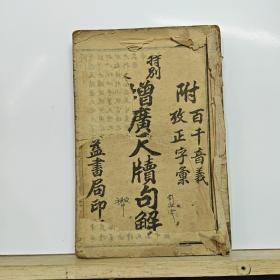 附百千音義
攷正字彙
特別
增廣尺牘句解
益書局印